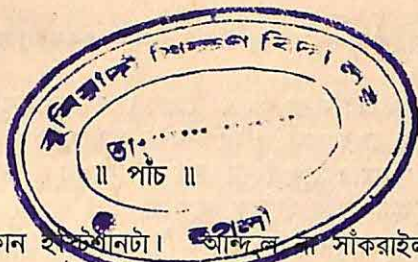 বিদ্যালয়
তা
॥ পাঁচ ॥
হুগলী
কোন ইস্টিশানটা। আন্দুল না সাঁকরাইল